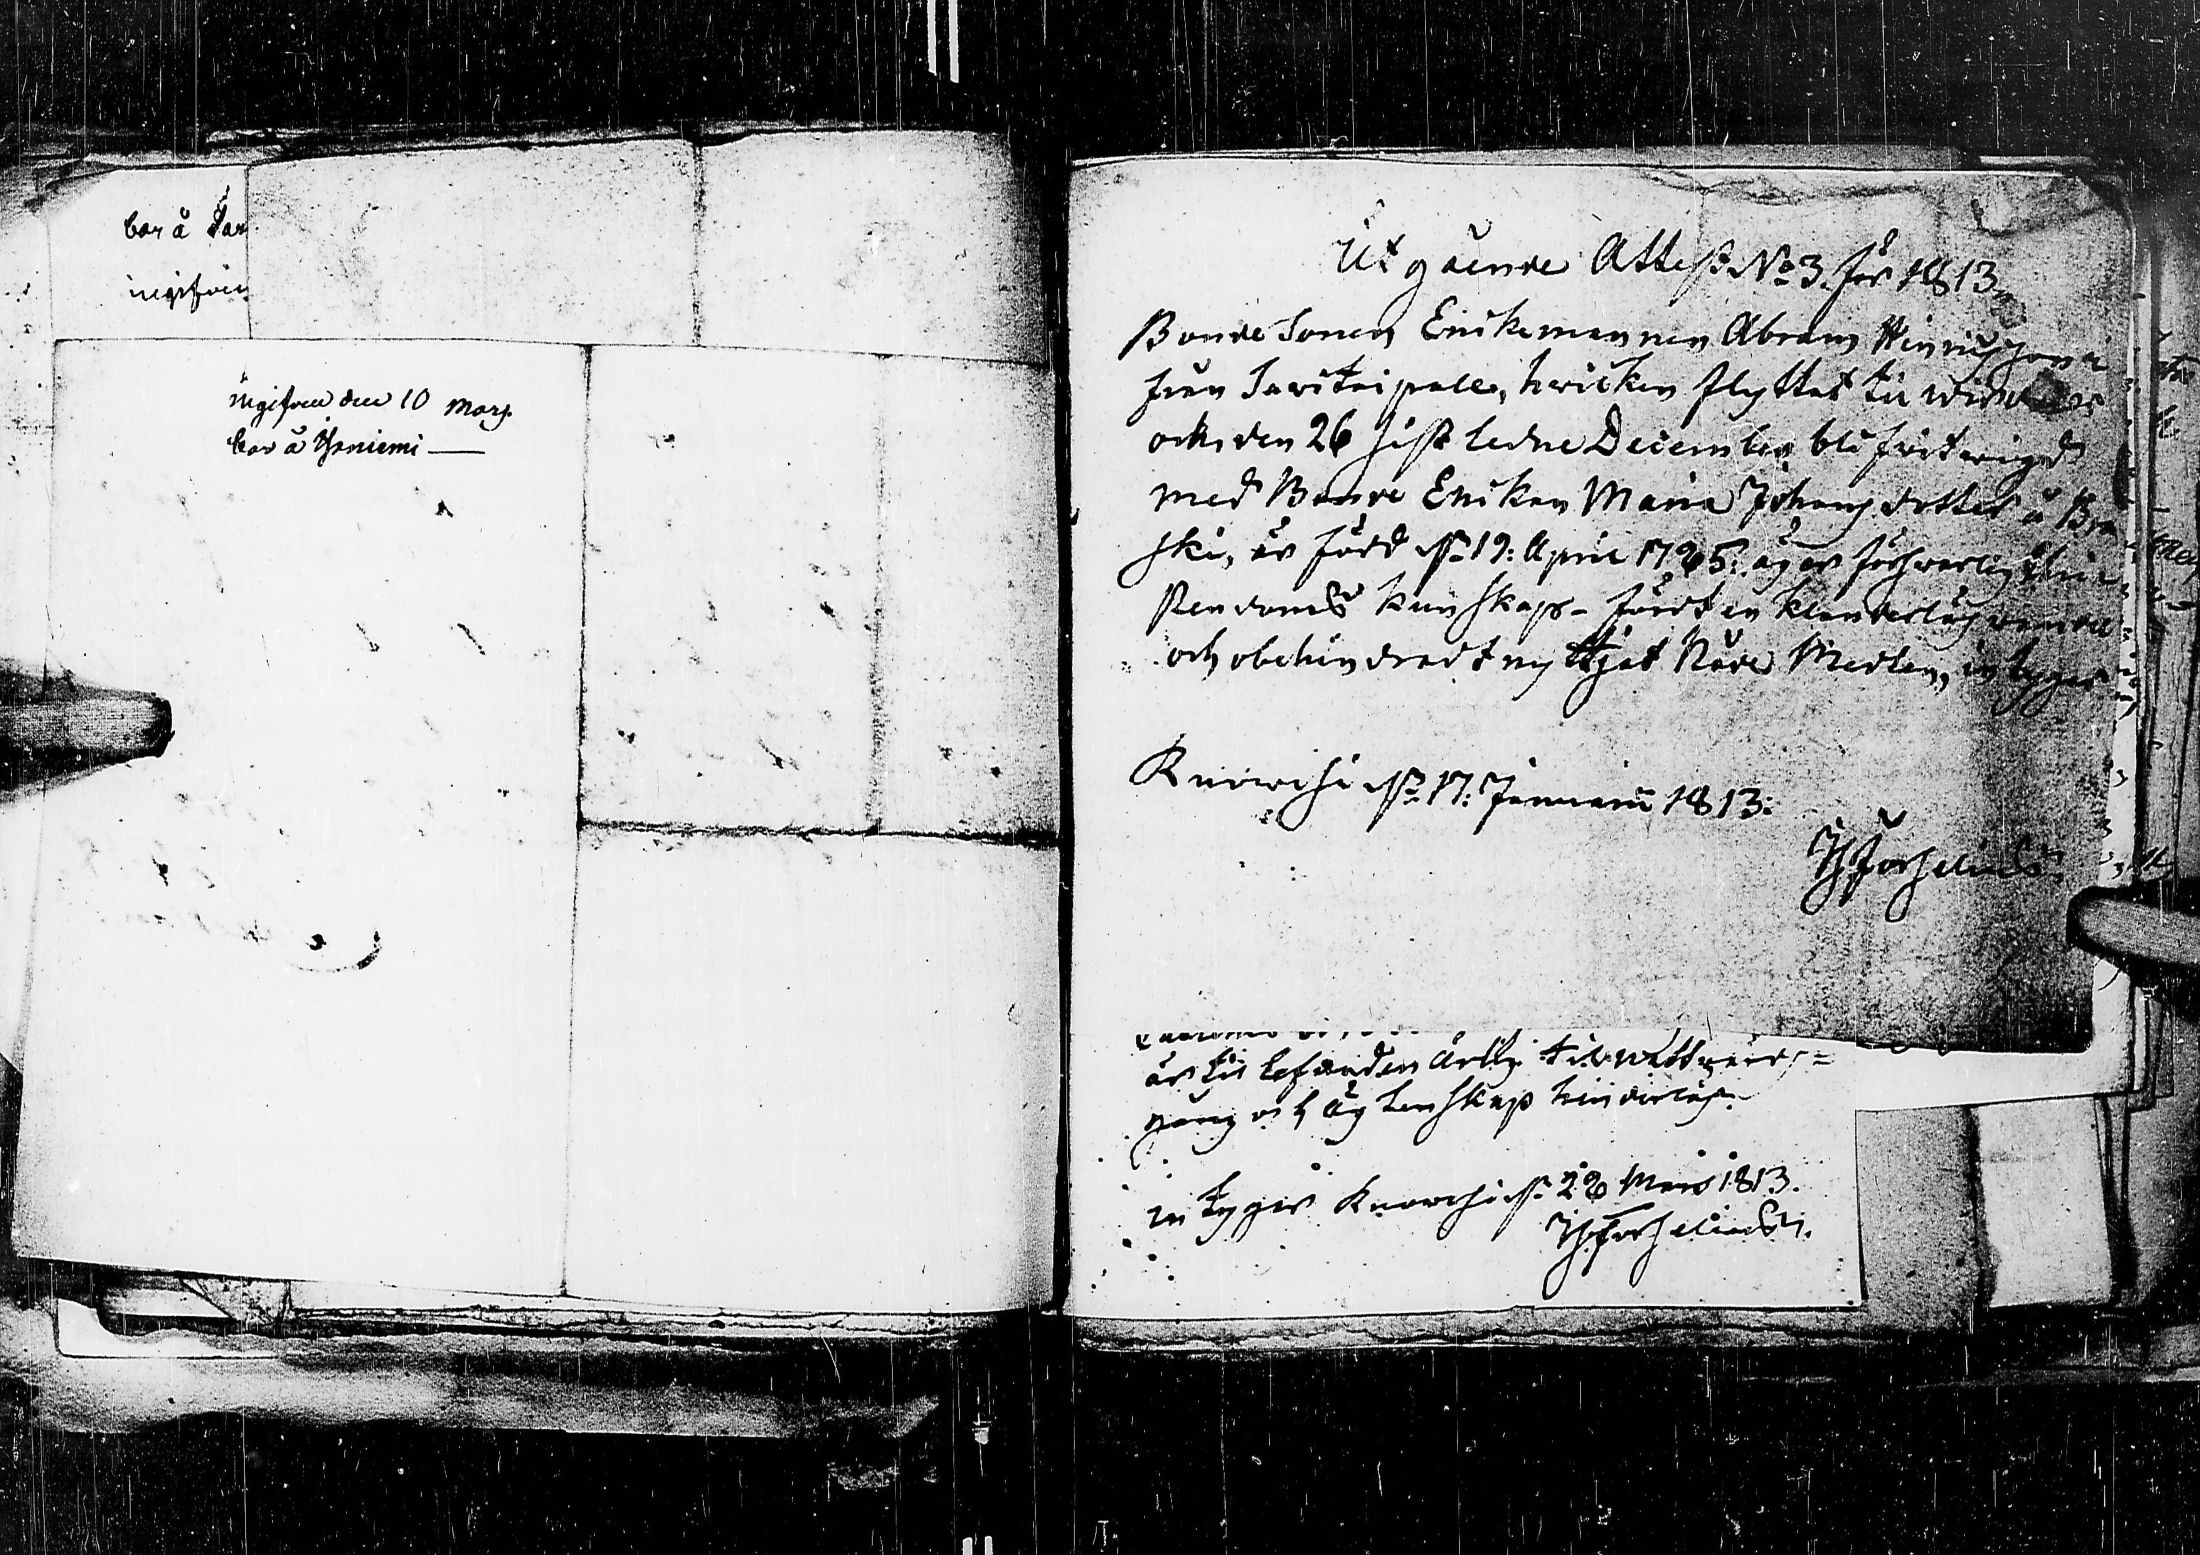 bor å
ingifven
ingifven den 10 Mars
bor å Yxniemi —
Utgående Attest No 3. för 1813.
Bonde Sonen Enkemannen Abram Hinricsson i
från Savitaipale, hvilken flyttat til
och den 26 sistledne December blifvit vigd
med Bonde Enkan Maria Johansdotter å
ski, är född d. 19: April 1785: äger försvarlig Chri-
stendoms kunskap - fördt en klanderlös vandel
och obehindradt nyttjat Nåde Medlen, intygar
d. 17: Januarii 1813:
är til lefnaden ärlig til Nattvards-
gång och Ägtenskap hinderlös.
intygar d. 28 Mars 1813.